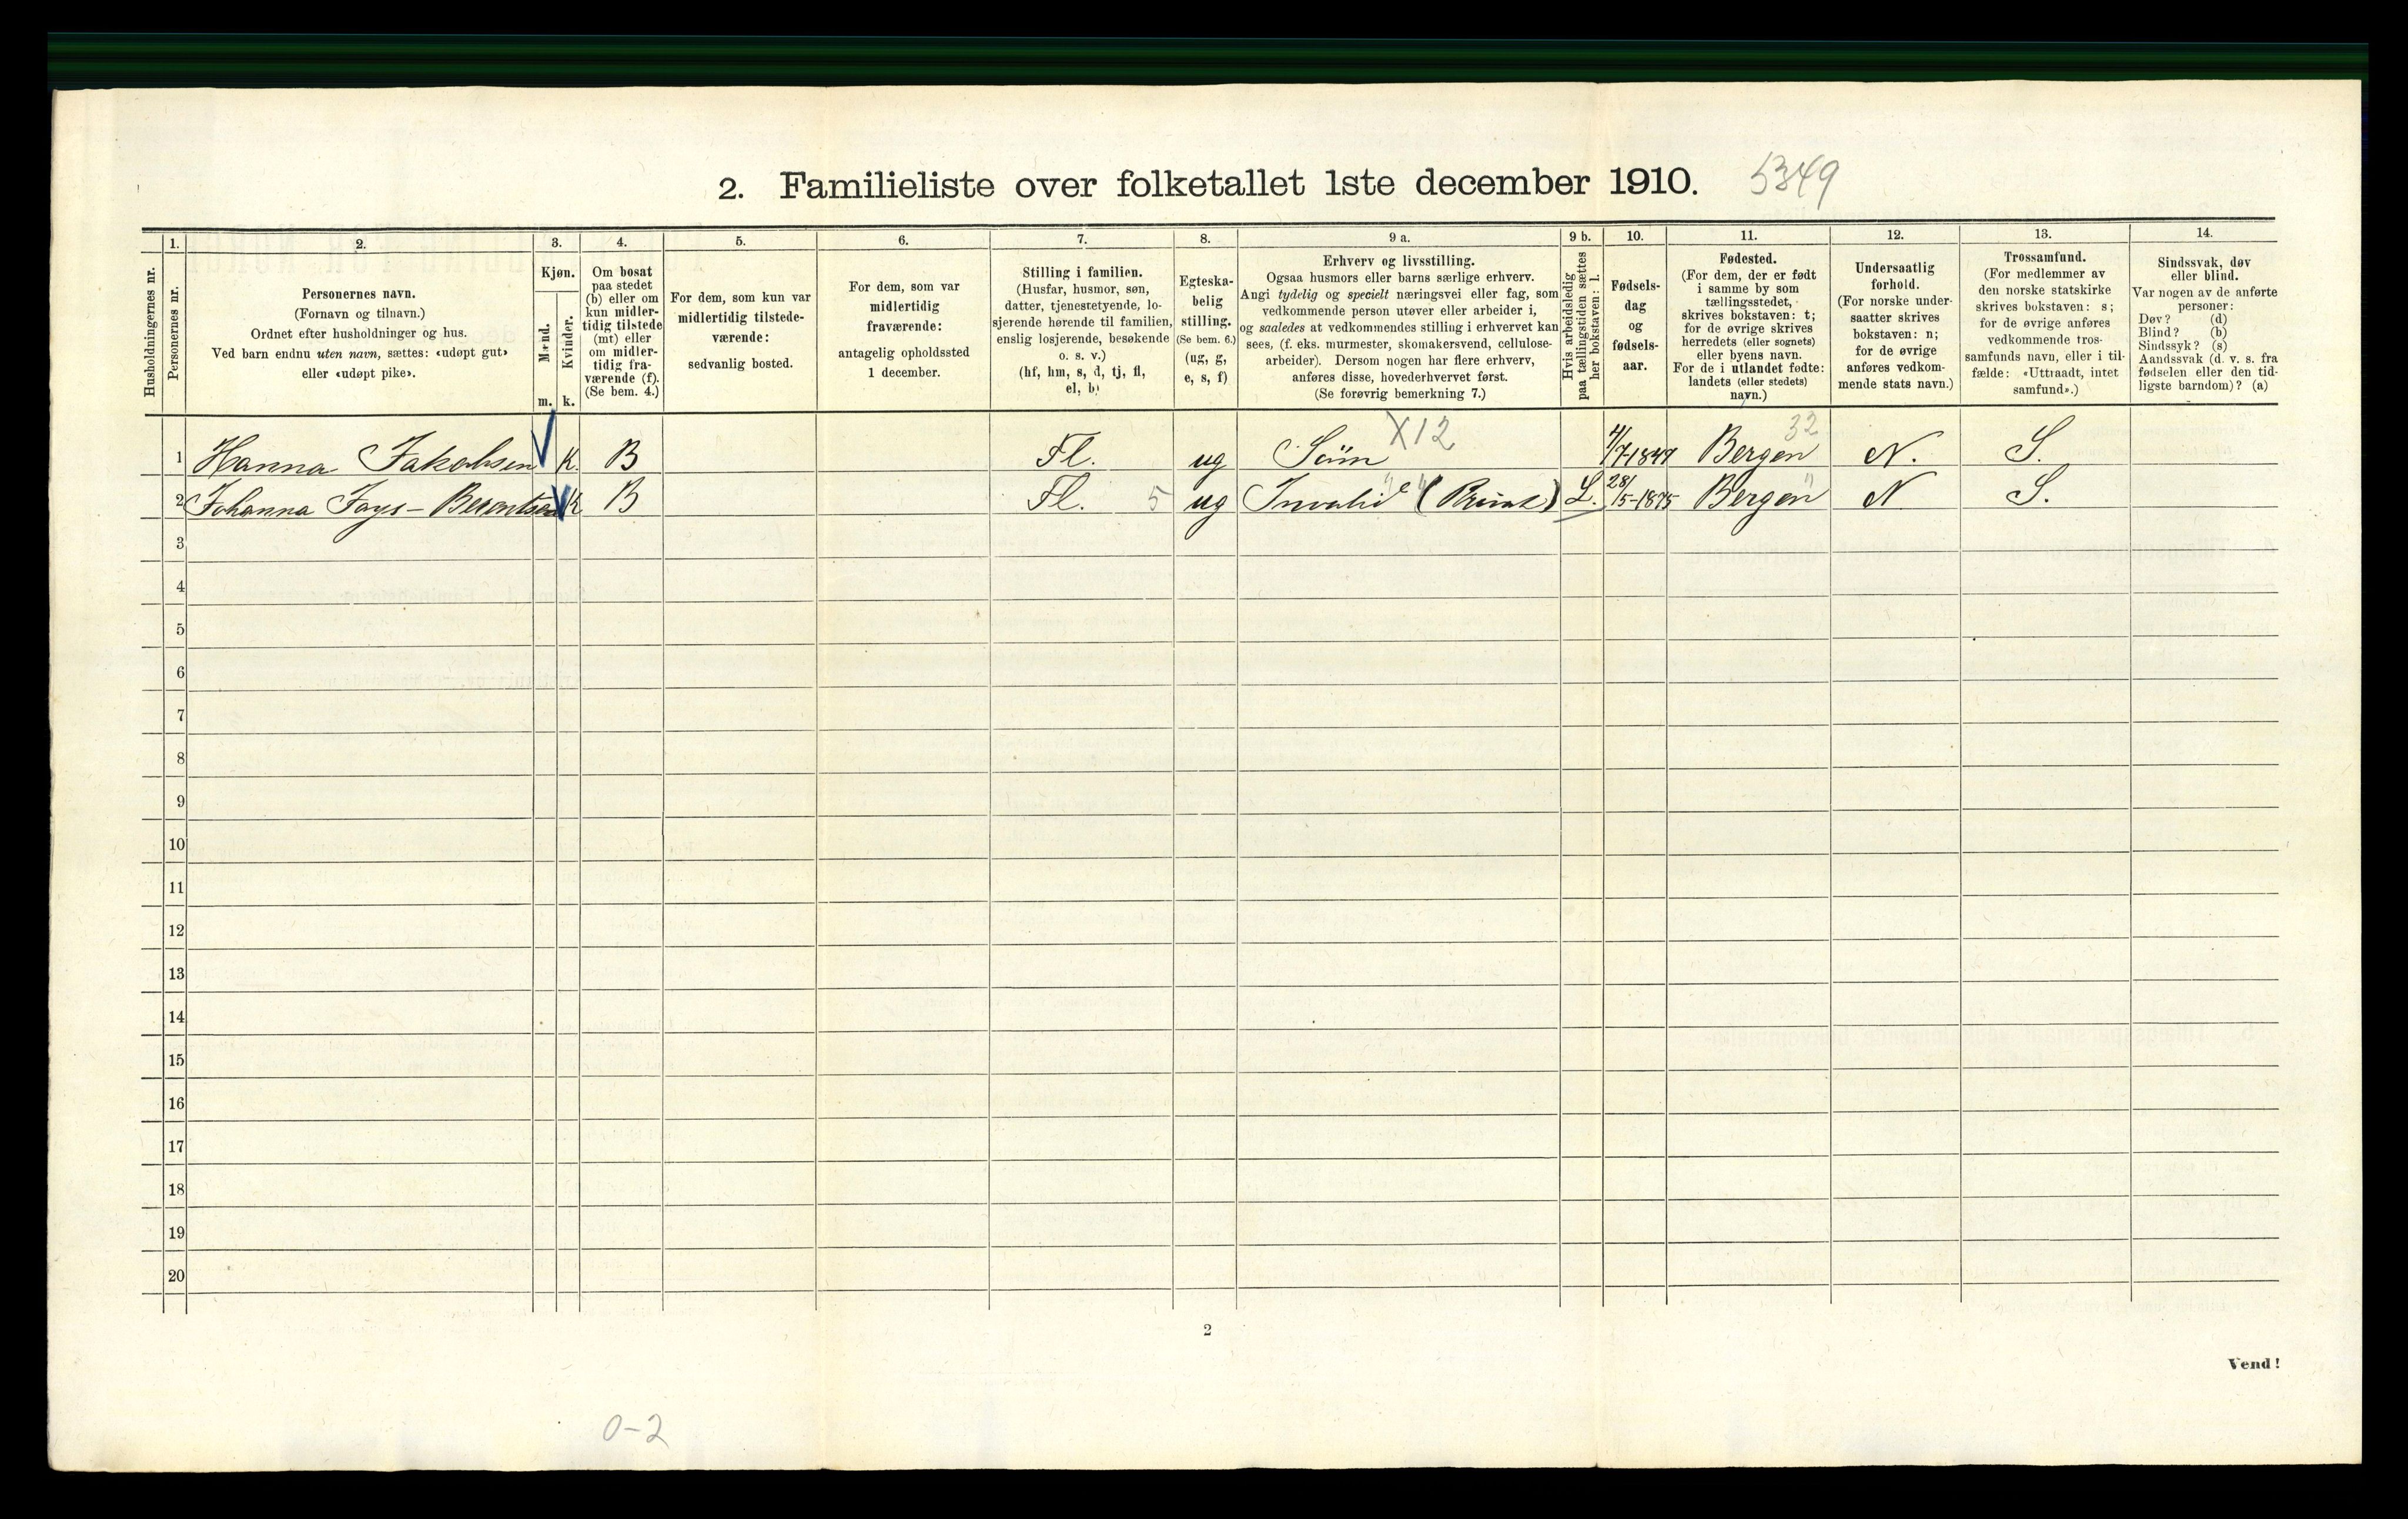 2. Familieliste over folketallet 1ste december 1910. 5349
Husholdningernes nr.
1.
Personernes nr.
2.
Personernes navn.
(Fornavn og tilnavn.)
Ordnet efter husholdninger og hus.
Ved barn endnu uten navn, sættes: «udøpt gut»
eller «udøpt pike».
3.
Kjøn.
Mænd.
m.
Kvinder.
k.
4.
Om bosat
paa stedet
(b) eller om
kun midler-
tidig tilstede
(mt) eller
om midler-
tidig fra-
værende (f).
(Se bem. 4.)
5.
For dem, som kun var
midlertidig tilstede-
værende:
sedvanlig bosted.
6.
For dem, som var
midlertidig
fraværende:
antagelig opholdssted
1 december.
7.
Stilling i familien.
(Husfar, husmor, søn,
datter, tjenestetyende, lo-
sjerende hørende til familien,
enslig losjerende, besøkende
o. s. v.)
(hf, hm, s, d, tj, fl,
el, b)
8.
Egteska-
belig
stilling.
(Se bem. 6.)
(ug, g,
e, s, f)
9 a.
Erhverv og livsstilling.
Ogsaa husmors eller barns særlige erhverv.
Angi tydelig og specielt næringsvei eller fag, som
vedkommende person utøver eller arbeider i,
og saaledes at vedkommendes stilling i erhvervet kan
sees, (f. eks. murmester, skomakersvend, cellulose-
arbeider). Dersom nogen har flere erhverv,
anføres disse, hovederhvervet først.
(Se forøvrig bemerkning 7.)
9 b.
Hvis arbeidsledig
paa tællingstiden sættes
her bokstaven: l.
10.
Fødsels-
dag
og
fødsels-
aar.
11.
Fødested.
(For dem, der er født
i samme by som
tællingsstedet,
skrives bokstaven: t;
for de øvrige skrives
herredets (eller sognets)
eller byens navn.
For de i utlandet fødte:
landets (eller stedets)
navn.)
12.
Undersaatlig
forhold.
(For norske under-
saatter skrives
bokstaven: n;
for de øvrige
anføres vedkom-
mende stats navn.)
13.
Trossamfund.
(For medlemmer av
den norske statskirke
skrives bokstaven: s;
for de øvrige anføres
vedkommende tros-
samfunds navn, eller i til-
fælde: «Uttraadt, intet
samfund».)
14.
Sindssvak, døv
eller blind.
Var nogen av de anførte
personer:
Døv? (d)
Blind? (b)
Sindssyk? (s)
Aandssvak (d. v. s. fra
fødselen eller den tid-
ligste barndom)? (a)
X12 32
1 Hanna Jakobsen K. B Fl. ug Søm 4/7-1847 Bergen N. S.
2 Johanna Fays-Berentsen K B Fl. 5 ug Invalid L. 28/5-1875 Bergen N S.
3
4
5
6
7
8
9
10
11
12
13
14
15
16
17
18
19
20
2
Vend!
0-2